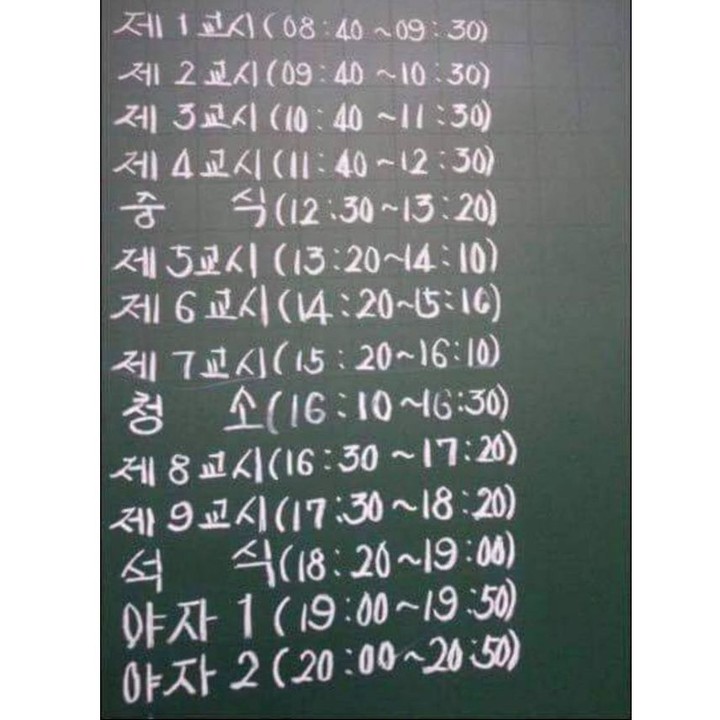 제 1 교시 (08:40 ~09:30)
제 2 교시 (09:40 ~10:30)
제 3 교시 (10:40 ~11:30)
제 4 교시 (11:40 ~12:30)
중 식 (12:30~13:20)
제 5 교시 (13:20~14:10)
제 6 교시 (14:20~15:10)
제 7 교시 (15:20~16:10)
청 소 (16:10~16:30)
제 8 교시 (16:30 ~17:20)
제 9 교시 (17:30 ~18:20)
석 식 (18:20~19:00)
야자 1 (19:00~19:50)
야자 2 (20:00~20:50)